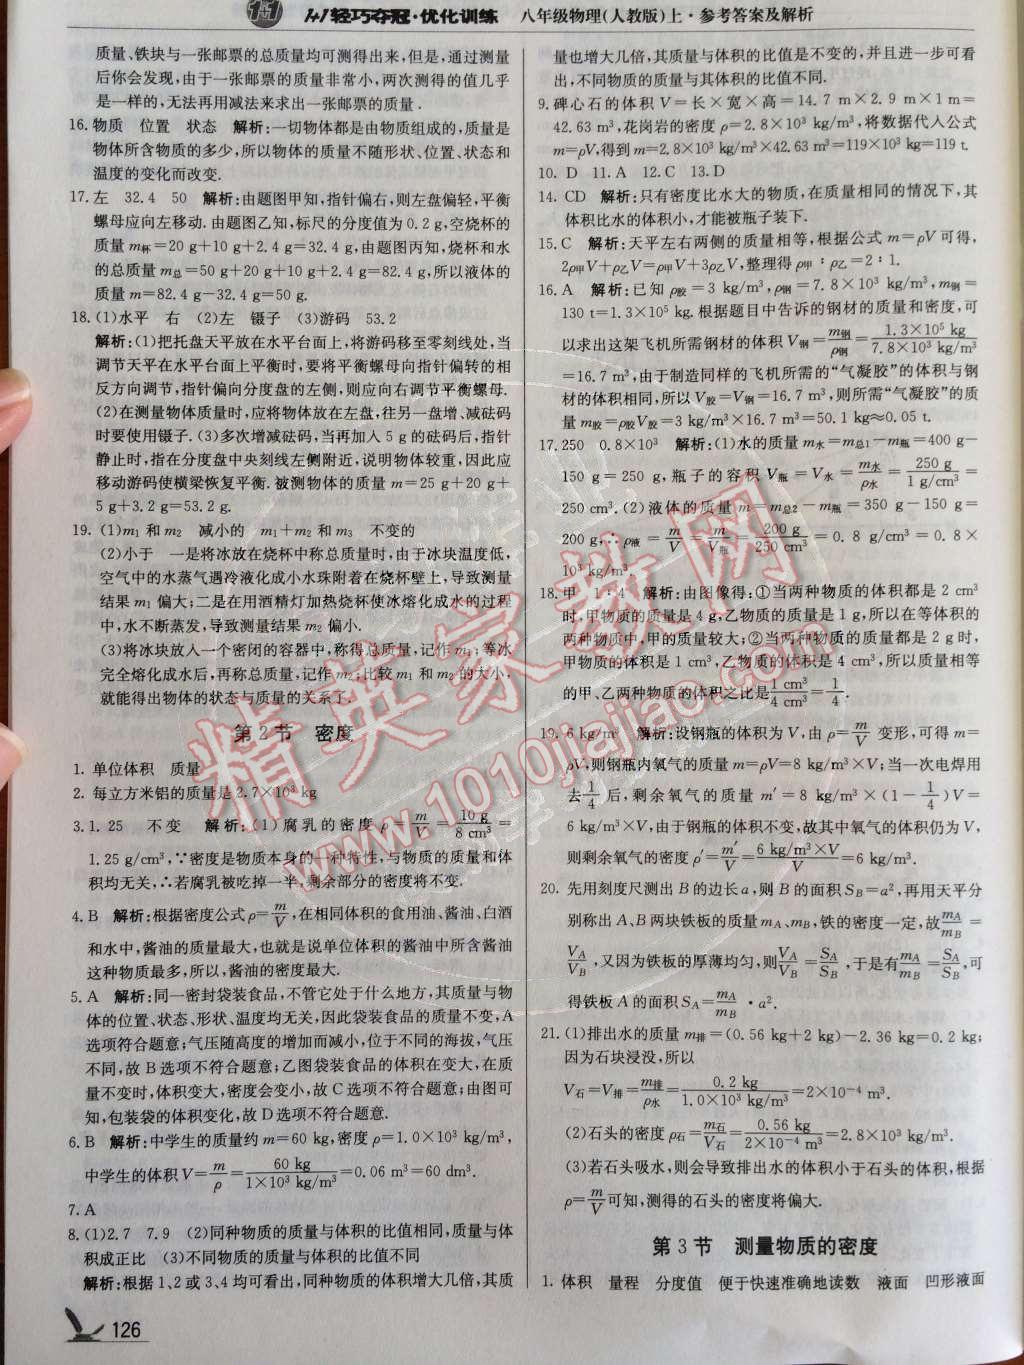 1+1轻巧夺冠·优化训练 八年级物理(人教版)上·参考答案及解析
质量、铁块与一张邮票的总质量均可测得出来,但是,通过测量
后你会发现,由于一张邮票的质量非常小,两次测得的值几乎
是一样的,无法再用减法来求出一张邮票的质量.
16.物质 位置 状态 解析:一切物体都是由物质组成的,质量是
物体所含物质的多少,所以物体的质量不随形状、位置、状态和
温度的变化而改变.
17.左 32.4 50 解析:由题图甲知,指针偏右,则左盘偏轻,平衡
螺母应向左移动.由题图乙知,标尺的分度值为0.2 g,空烧杯的
质量m杯=20 g+10 g+2.4 g=32.4 g,由题图丙知,烧杯和水
的总质量m总=50 g+20 g+10 g+2.4 g=82.4 g,所以液体的
质量m=82.4 g-32.4 g=50 g.
18.(1)水平 右 (2)左 镊子 (3)游码 53.2
解析:(1)把托盘天平放在水平台面上,将游码移至零刻线处,当
调节天平在水平台面上平衡时,要将平衡螺母向指针偏转的相
反方向调节,指针偏向分度盘的左侧,则应向右调节平衡螺母.
(2)在测量物体质量时,应将物体放在左盘,往另一盘增、减砝码
时要使用镊子.(3)多次增减砝码,当再加入5 g的砝码后,指针
静止时,指在分度盘中央刻线左侧附近,说明物体较重,因此应
移动游码使横梁恢复平衡.被测物体的质量m=25 g+20 g+
5 g+3.2 g=53.2 g.
19.(1)m1和m2 减小的 m1+m2和m3 不变的
(2)小于 一是将冰放在烧杯中称总质量时,由于冰块温度低,
空气中的水蒸气遇冷液化成小水珠附着在烧杯壁上,导致测量
结果m1偏大;二是在用酒精灯加热烧杯使冰熔化成水的过程
中,水不断蒸发,导致测量结果m2偏小.
(3)将冰块放入一个密闭的容器中,称得总质量,记作m1;等冰
完全熔化成水后,再称总质量,记作m2;比较m1和m2的大小,
就能得出物体的状态与质量的关系了.
第2节 密度
1.单位体积 质量
2.每立方米铝的质量是2.7×10³ kg
3.1.25 不变 解析:(1)腐乳的密度ρ=m/V=10 g/8 cm³=
1.25 g/cm³,∵密度是物质本身的一种特性,与物质的质量和体
积均无关,∴若腐乳被吃掉一半,剩余部分的密度将不变.
4.B 解析:根据密度公式ρ=m/V,在相同体积的食用油、酱油、白酒
和水中,酱油的质量最大,也就是说单位体积的酱油中所含酱油
这种物质最多,所以,酱油的密度最大.
5.A 解析:同一密封袋装食品,不管它处于什么地方,其质量与物
体的位置、状态、形状、温度均无关,因此袋装食品的质量不变,A
选项符合题意;气压随高度的增加而减小,位于不同的海拔,气压
不同,故B选项不符合题意;乙图袋装食品的体积在变大,在质
量不变时,体积变大,密度会变小,故C选项不符合题意;由图可
知,包装袋的体积变化,故D选项不符合题意.
6.B 解析:中学生的质量约m=60 kg,密度ρ=1.0×10³ kg/m³,
中学生的体积V=m/ρ=60 kg/1×10³ kg/m³=0.06 m³=60 dm³.
7.A
8.(1)2.7 7.9 (2)同种物质的质量与体积的比值相同,质量与体
积成正比 (3)不同物质的质量与体积的比值不同
解析:根据1、2或3、4均可看出,同种物质的体积增大几倍,其质
126
量也增大几倍,其质量与体积的比值是不变的,并且进一步可看
出,不同物质的质量与其体积的比值不同.
9.碑心石的体积V=长×宽×高=14.7 m×2.9 m×1 m=
42.63 m³,花岗岩的密度ρ=2.8×10³ kg/m³,将数据代入公式
m=ρV,得到m=2.8×10³ kg/m³×42.63 m³=119×10³ kg=119 t.
10.D 11.A 12.C 13.D
14.CD 解析:只有密度比水大的物质,在质量相同的情况下,其
体积比水的体积小,才能被瓶子装下.
15.C 解析:天平左右两侧的质量相等,根据公式m=ρV可得,
2ρ甲V+ρ乙V=ρ甲V+3ρ乙V,整理得ρ甲∶ρ乙=2∶1.
16.A 解析:已知ρ胶=3 kg/m³,ρ钢=7.8×10³ kg/m³,m钢=
130 t=1.3×10⁵ kg.根据题目中告诉的钢材的质量和密度,可
以求出这架飞机所需钢材的体积V钢=m钢/ρ钢=1.3×10⁵ kg/7.8×10³ kg/m³
=16.7 m³,由于制造同样的飞机所需的“气凝胶”的体积与钢
材的体积相同,所以V胶=V钢=16.7 m³,则所需“气凝胶”的质
量m胶=ρ胶V胶=3 kg/m³×16.7 m³=50.1 kg≈0.05 t.
17.250 0.8×10³ 解析:(1)水的质量m水=m总1-m瓶=400 g-
150 g=250 g,瓶子的容积V瓶=V水=m水/ρ水=250 g/1 g/cm³=
250 cm³.(2)液体的质量m=m总2-m瓶=350 g-150 g=
200 g,∴ρ液=m/V=m/V瓶=200 g/250 cm³=0.8 g/cm³=0.8×
10³ kg/m³.
18.甲 1∶4 解析:由图像得:①当两种物质的体积都是2 cm³
时,甲物质的质量是4 g,乙物质的质量是1 g,所以在等体积的
两种物质中,甲的质量较大;②当两种物质的质量都是2 g时,
甲物质的体积是1 cm³,乙物质的体积是4 cm³,所以质量相等
的甲、乙两种物质的体积之比是1 cm³/4 cm³=1/4.
19.6 kg/m³ 解析:设钢瓶的体积为V,由ρ=m/V变形,可得m=
ρV,则钢瓶内氧气的质量m=ρV=8 kg/m³×V;当一次电焊用
去1/4后,剩余氧气的质量m′=8 kg/m³×(1-1/4)V=
6 kg/m³×V,由于钢瓶的体积不变,故其中氧气的体积仍为V,
则剩余氧气的密度ρ′=m′/V=6 kg/m³×V/V=6 kg/m³.
20.先用刻度尺测出B的边长a,则B的面积SB=a²,再用天平分
别称出A、B两块铁板的质量mA、mB,铁的密度一定,故mA/mB=
VA/VB,又因为铁板的厚薄均匀,则VA/VB=SA/SB,于是有mA/mB=SA/SB,可
得铁板A的面积SA=mA/mB·a².
21.(1)排出水的质量m排=(0.56 kg+2 kg)-2.36 kg=0.2 kg;
因为石块浸没,所以
V石=V排=m排/ρ水=0.2 kg/1.0×10³ kg/m³=2×10⁻⁴ m³.
(2)石头的密度ρ石=m石/V石=0.56 kg/2×10⁻⁴ m³=2.8×10³ kg/m³.
(3)若石头吸水,则会导致排出水的体积小于石头的体积,根据
ρ=m/V可知,测得的石头的密度将偏大.
第3节 测量物质的密度
1.体积 量程 分度值 便于快速准确地读数 液面 凹形液面
精英家教网
www.1010jiajiao.com